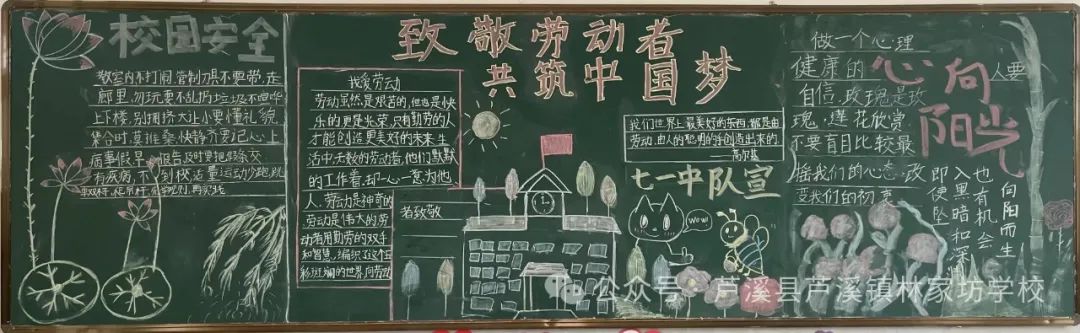 校园安全
教室内不打闹,管制刀具不要带,走
廊里,勿玩耍不乱扔垃圾不喧哗
上下楼,别拥挤大让小要懂礼貌
集合时,莫推桑快静齐要记心上
致敬劳动者
共筑中国梦
我爱劳动
劳动虽然是艰苦的,但也是快
乐的更是光荣,只有勤劳的人
才能创造更美好的未来生
活中无数的劳动者,他们默默
的工作着,却一心一意为他
人,劳动是神奇的
劳动是伟大的劳
动者用勤劳的双手
和智慧,编织了这个五
彩斑斓的世界,向劳动
者致敬
我们世界上最美好的东西,都是由
劳动,由人的聪明的手创造出来的
——高尔基
七一中队宣
wow!
做一个心理
健康的
人要
自信,玫瑰是玫
瑰,莲花欣赏
不要盲目比较最
摇我们的心态,改
变我们的初衷
心向阳光
向阳而生
也有机会
入黑暗和深渊
即便坠
公众号·芦溪县芦溪镇林家坊学校